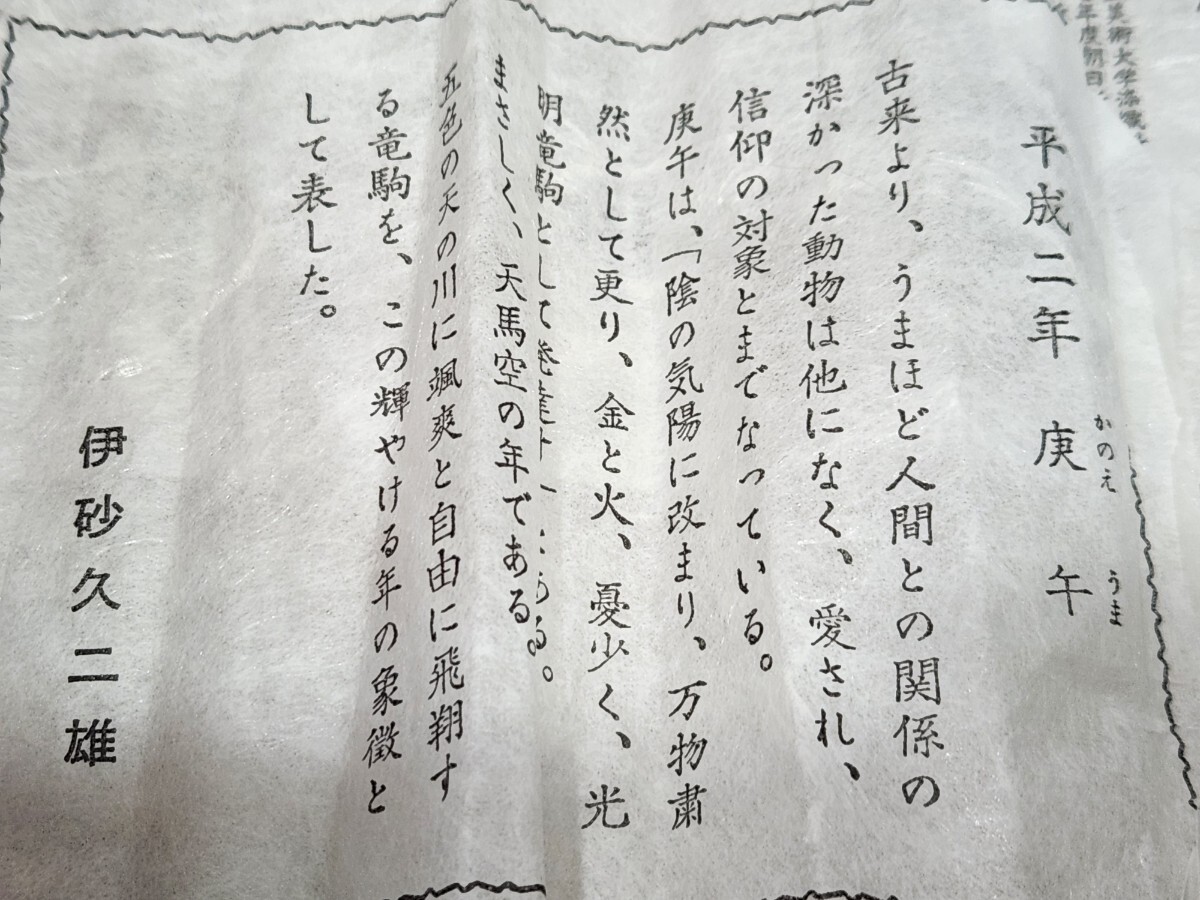 平成二年 庚午
かのえ うま
古来より、うまほど人間との関係の
深かった動物は他になく、愛され、
信仰の対象とまでなっている。
庚午は、「陰の気陽に改まり、万物粛
然として更り、金と火、憂少く、光
明竜駒として発達
まさしく、天馬空の年である。
五色の天の川に颯爽と自由に飛翔す
る竜駒を、この輝やける年の象徴と
して表した。
伊砂久二雄
美術大学
年度朝日